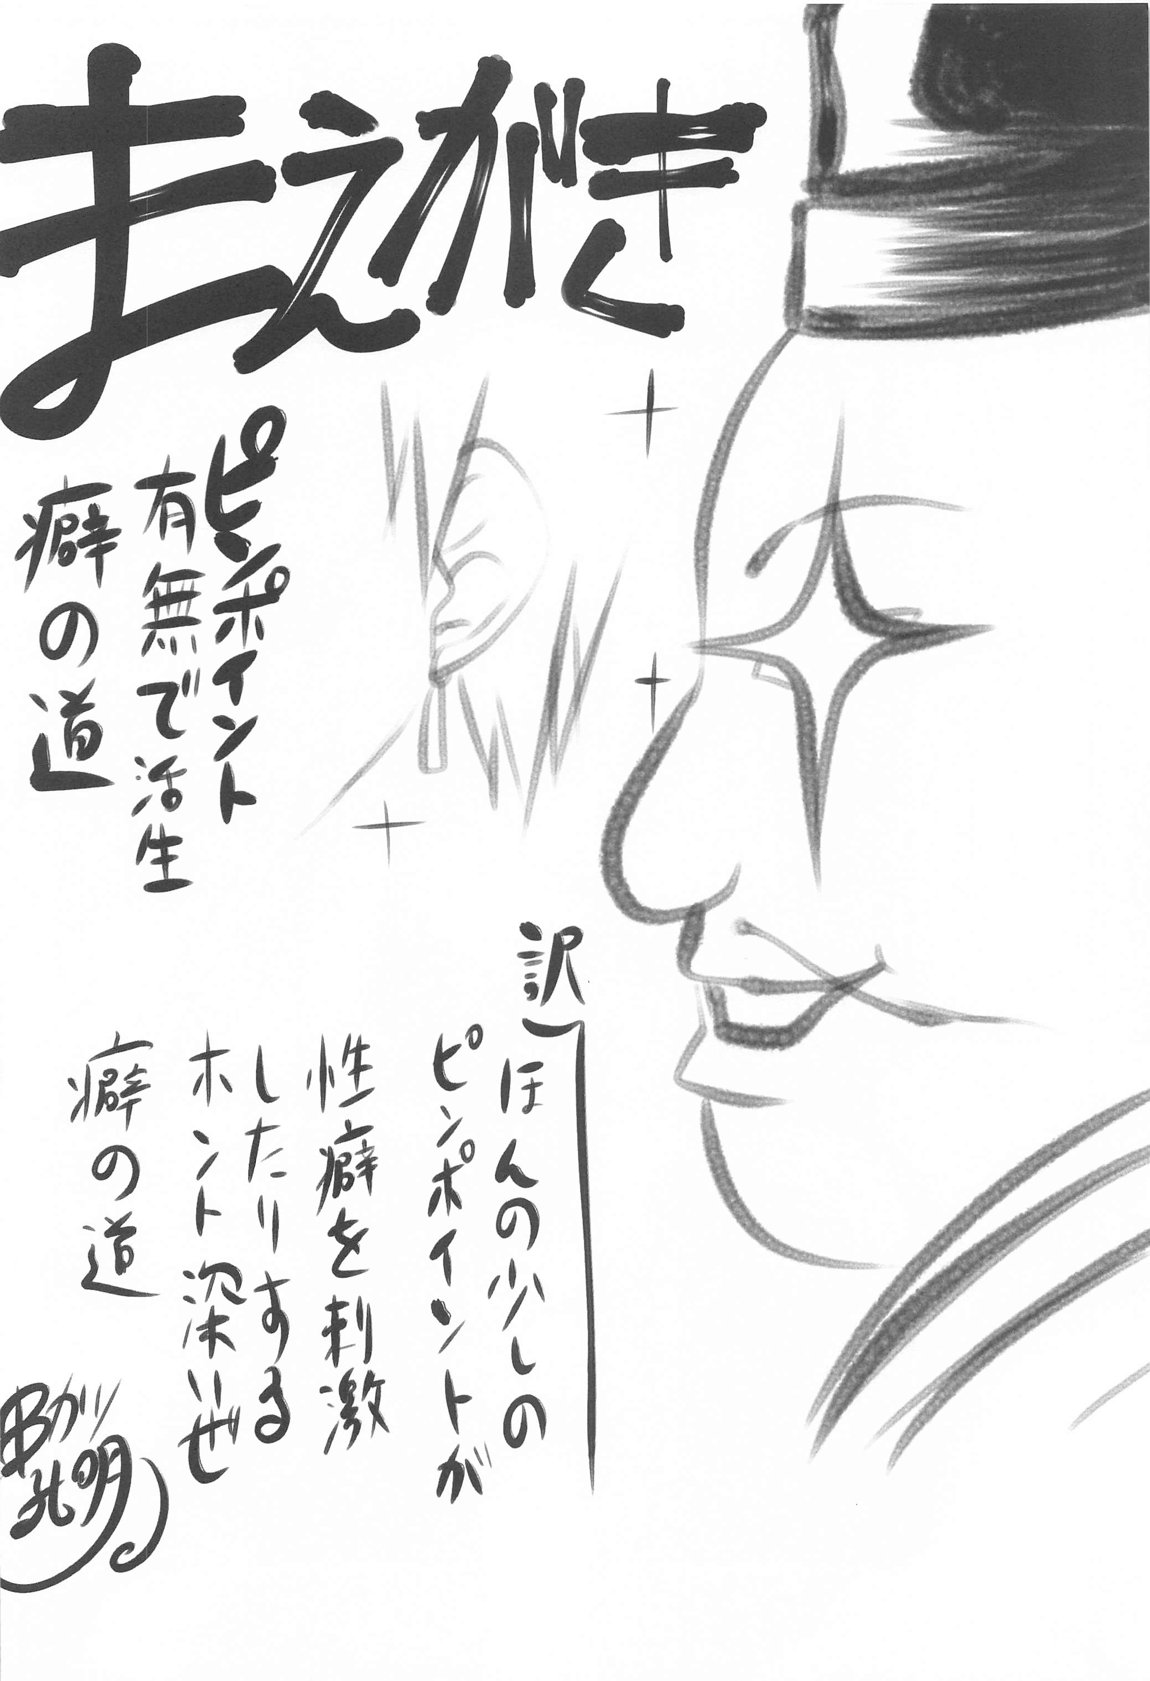 まえがき
ピンポイント
有無で活生
癖の道
訳
ほんの少しの
ピンポイントが
性癖を刺激
したりする
ホント深いぜ
癖の道
孔明